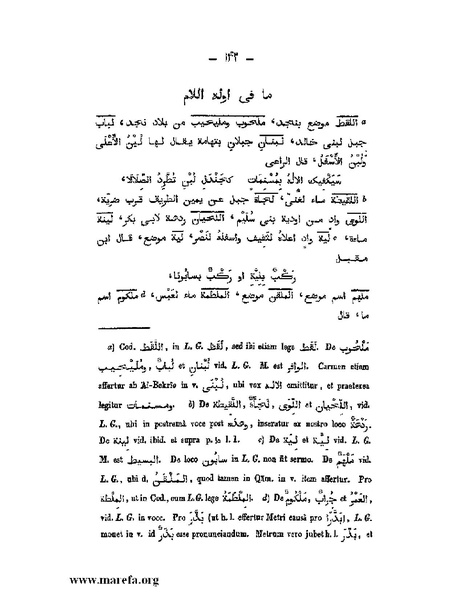 — ١٤٣ —
ما فى اوله اللام
a اللقط موضع بنجد، ملحوب ومليحيب من بلاد نجد، لباب
جبل لبنى خالد، لبنان جبلان بتهامة يقال لها لبن الأعلى
ولبن الأسفل، قال الراعى
سيكفيك الاله بمسنمات كجندل لبن تطرد الصلالا،
b اللقيطة ماء لغنى، لجاة جبل عن يمين الطريف قرب ضرية،
اللوى واد من اودية بنى سليم، اللحيان ردهة لابى بكر، لينة
ماءة، c لية واد اعلاه لثقيف واسفله لنصر، لية موضع، قال ابن
مقبل
ركب بلية او ركب بسايونا،
ملهم اسم موضع، الملقى موضع، الملطة ماء لعبس، d ملكوم اسم
ما، قال
a) Cod. اللَّقَط, in L. G. لَقَط, sed ibi etiam lege لُقَط. De مَلْحُوب
et لُباب, لُبْنَان et مُلَيْحِيب vid. L. G. M. est الوافر. Carmen etiam
affertur ab Al-Bekrîo in v. لُبْنَى, ubi vox الاله omittitur, et praeterea
legitur ومسنمات. b) De لَجَاة, اللَّقِيطَة, اللِّوَى et اللَّحْيان, vid.
L. G., ubi in postremâ voce post وعلة, inseratur ex nostro loco رَدْهَة.
De لينة vid. ibid. et supra p. ١٠ l. 1. c) De لِيَّة et لية vid. L. G.
M. est البسيط. De loco سايون in L. G. non fit sermo. De مَلْهَم vid.
L. G., ubi d, المَلْقَى, quod tamen in Qâm. in v. item affertur. Pro
الملطة, ut in Cod., cum L. G. lege المَلْطَمَة. d) De مَلْكُوم, جُرَاب et الغَمْر,
vid. L. G. in voce. Pro بَذَّر (ut h. l. effertur Metri causâ pro بَذَّرَ), L. G.
monet in v. id بَذَّر esse pronunciandum. Metrum vero jubet h. l. بَذَّر, et
www.marefa.org